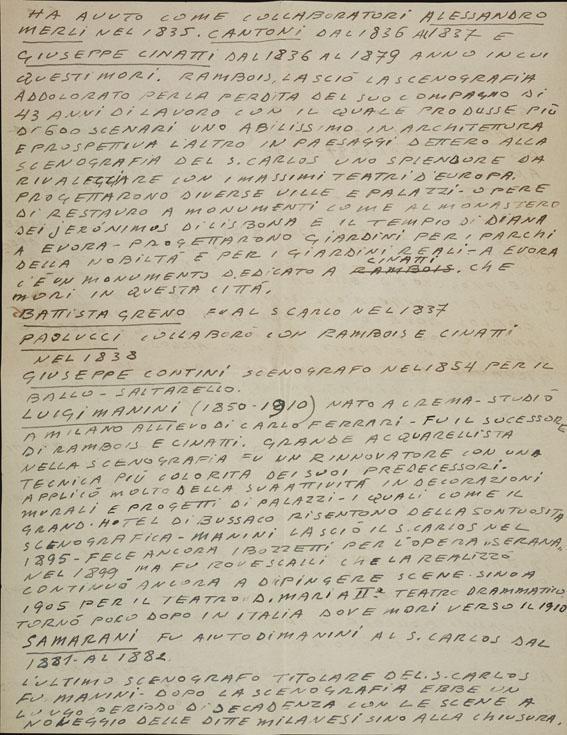 HA AVUTO COME COLLABORATORI ALESSANDRO
MERLI NEL 1835. CANTONI DAL 1836 AL 1837 E
GIUSEPPE CINATTI DAL 1836 AL 1879 ANNO IN CUI
QUESTI MORÌ. RAMBOIS, LASCIÒ LA SCENOGRAFIA
ADDOLORATO PER LA PERDITA DEL SUO COMPAGNO DI
43 ANNI DI LAVORO CON IL QUALE PRODUSSE PIÙ
DI 600 SCENARI UNO ABILISSIMO IN ARCHITETTURA
E PROSPETTIVA L'ALTRO IN PAESAGGI DETTERO ALLA
SCENOGRAFIA DEL S. CARLOS UNO SPLENDORE DA
RIVALEGGIARE CON I MASSIMI TEATRI D'EUROPA.
PROGETTARONO DIVERSE VILLE E PALAZZI - OPERE
DI RESTAURO A MONUMENTI COME AL MONASTERO
DEI JERÓNIMOS DI LISBONA E IL TEMPIO DI DIANA
A EVORA - PROGETTARONO GIARDINI PER I PARCHI
DELLA NOBILTÀ E PER I GIARDINI REALI - A EVORA
C'È UN MONUMENTO DEDICATO A RAMBOIS CINATTI. CHE
MORÌ IN QUESTA CITTÀ.
BATTISTA GRENO FU AL S CARLO NEL 1837
PAOLUCCI COLLABORÒ CON RAMBOIS E CINATTI
NEL 1838
GIUSEPPE CONTINI SCENOGRAFO NEL 1854 PER IL
BALLO - SALTARELLO.
LUIGI MANINI (1850-1910) NATO A CREMA - STUDIÒ
A MILANO ALLIEVO DI CARLO FERRARI - FU IL SUCESSORE
DI RAMBOIS E CINATTI. GRANDE ACQUARELLISTA
NELLA SCENOGRAFIA FU UN RINNOVATORE CON UNA
TECNICA PIÙ COLORITA DEI SUOI PREDECESSORI.
APPLICÒ MOLTO DELLA SUA ATTIVITÀ IN DECORAZIONI
MURALI E PROGETTI DI PALAZZI - I QUALI COME IL
GRAND-HOTEL DI BUSSACO RISENTONO DELLA SONTUOSITÀ
SCENOGRAFICA - MANINI LASCIÒ IL S. CARLOS NEL
1895 - FECE ANCORA I BOZZETTI PER L'OPERA "SERANA"
NEL 1899 MA FU ROVESCALLI CHE LA REALIZZÒ
CONTINUÒ ANCORA A DIPINGERE SCENE. SINO A
1905 PER IL TEATRO D. MARIA IIª TEATRO DRAMMATICO,
TORNÒ POCO DOPO IN ITALIA DOVE MORÌ VERSO IL 1910
SAMARANI FU AIUTO DI MANINI AL S. CARLOS DAL
1881 - AL 1882.
L'ULTIMO SCENOGRAFO TITOLARE DEL S. CARLOS
FU. MANINI - DOPO LA SCENOGRAFIA EBBE UN
LUNGO PERIODO DI DECADENZA CON LE SCENE A
NOLEGGIO DELLE DITTE MILANESI SINO ALLA CHIUSURA.